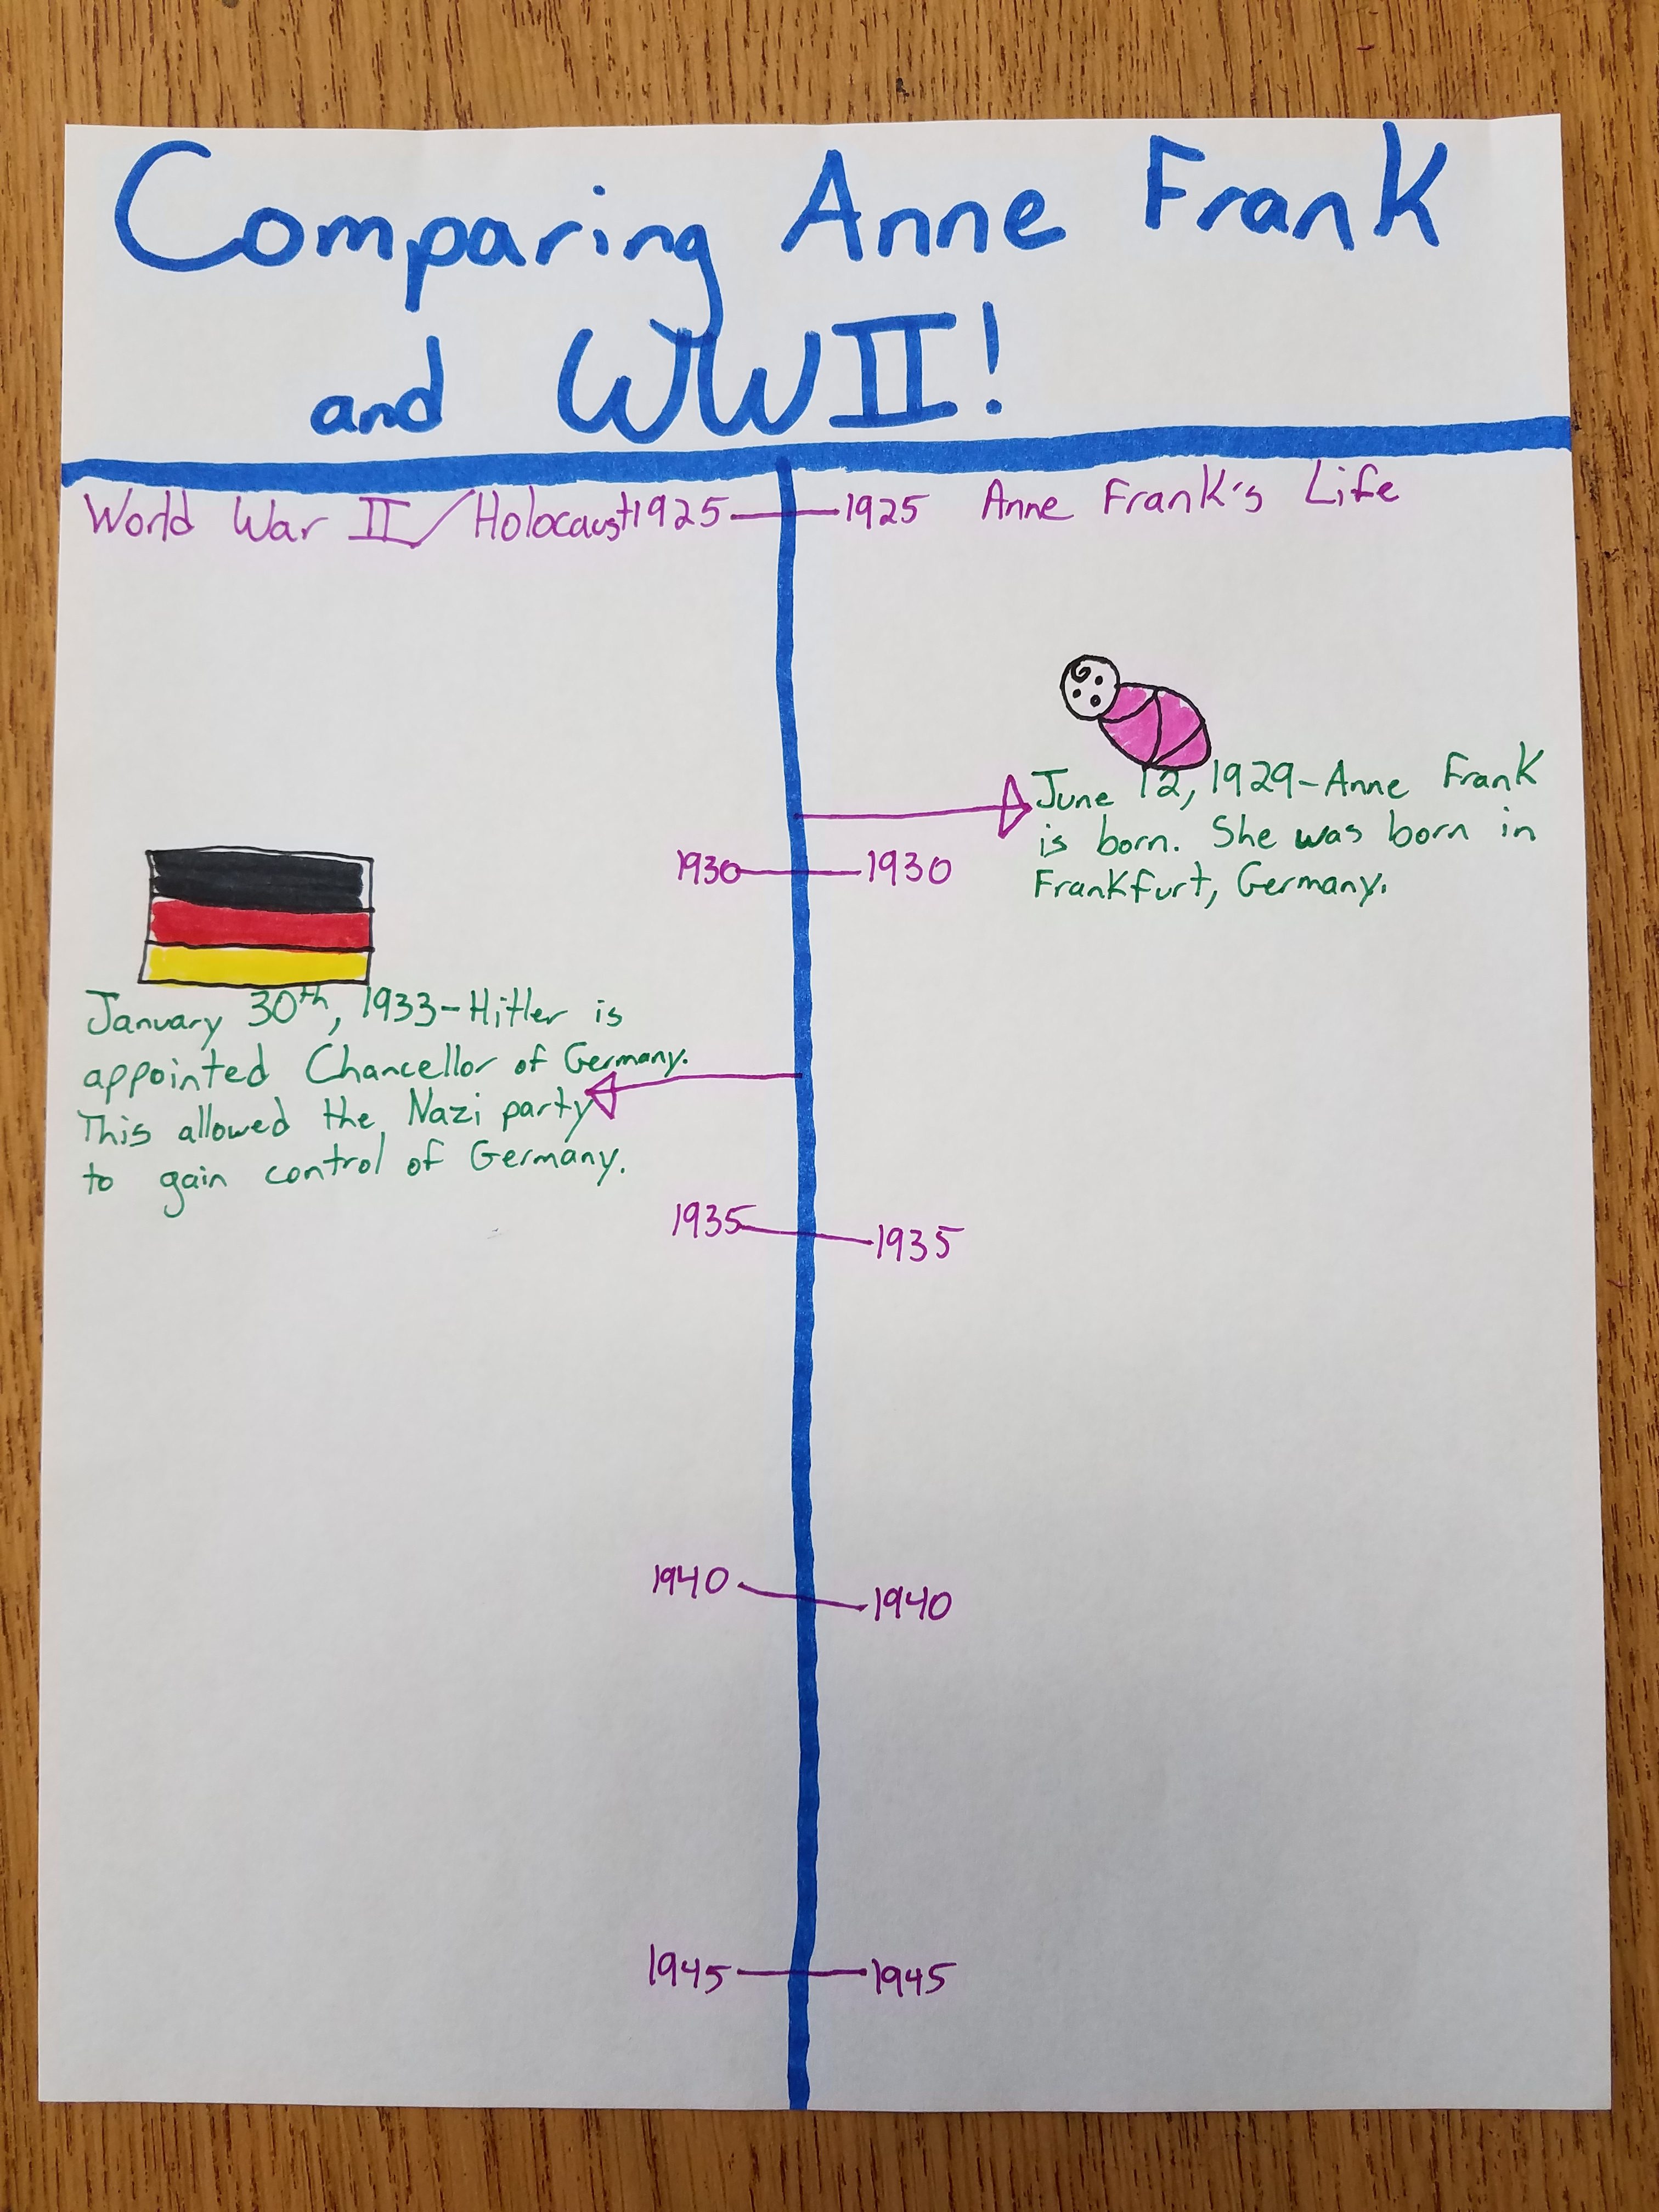 Comparing Anne Frank
and WWII!
World War II/Holocaust 1925 1925 Anne Frank's Life
June 12, 1929-Anne Frank
is born. She was born in
Frankfurt, Germany.
1930 1930
January 30th, 1933-Hitler is
appointed Chancellor of Germany.
This allowed the Nazi party
to gain control of Germany.
1935 1935
1940 1940
1945 1945